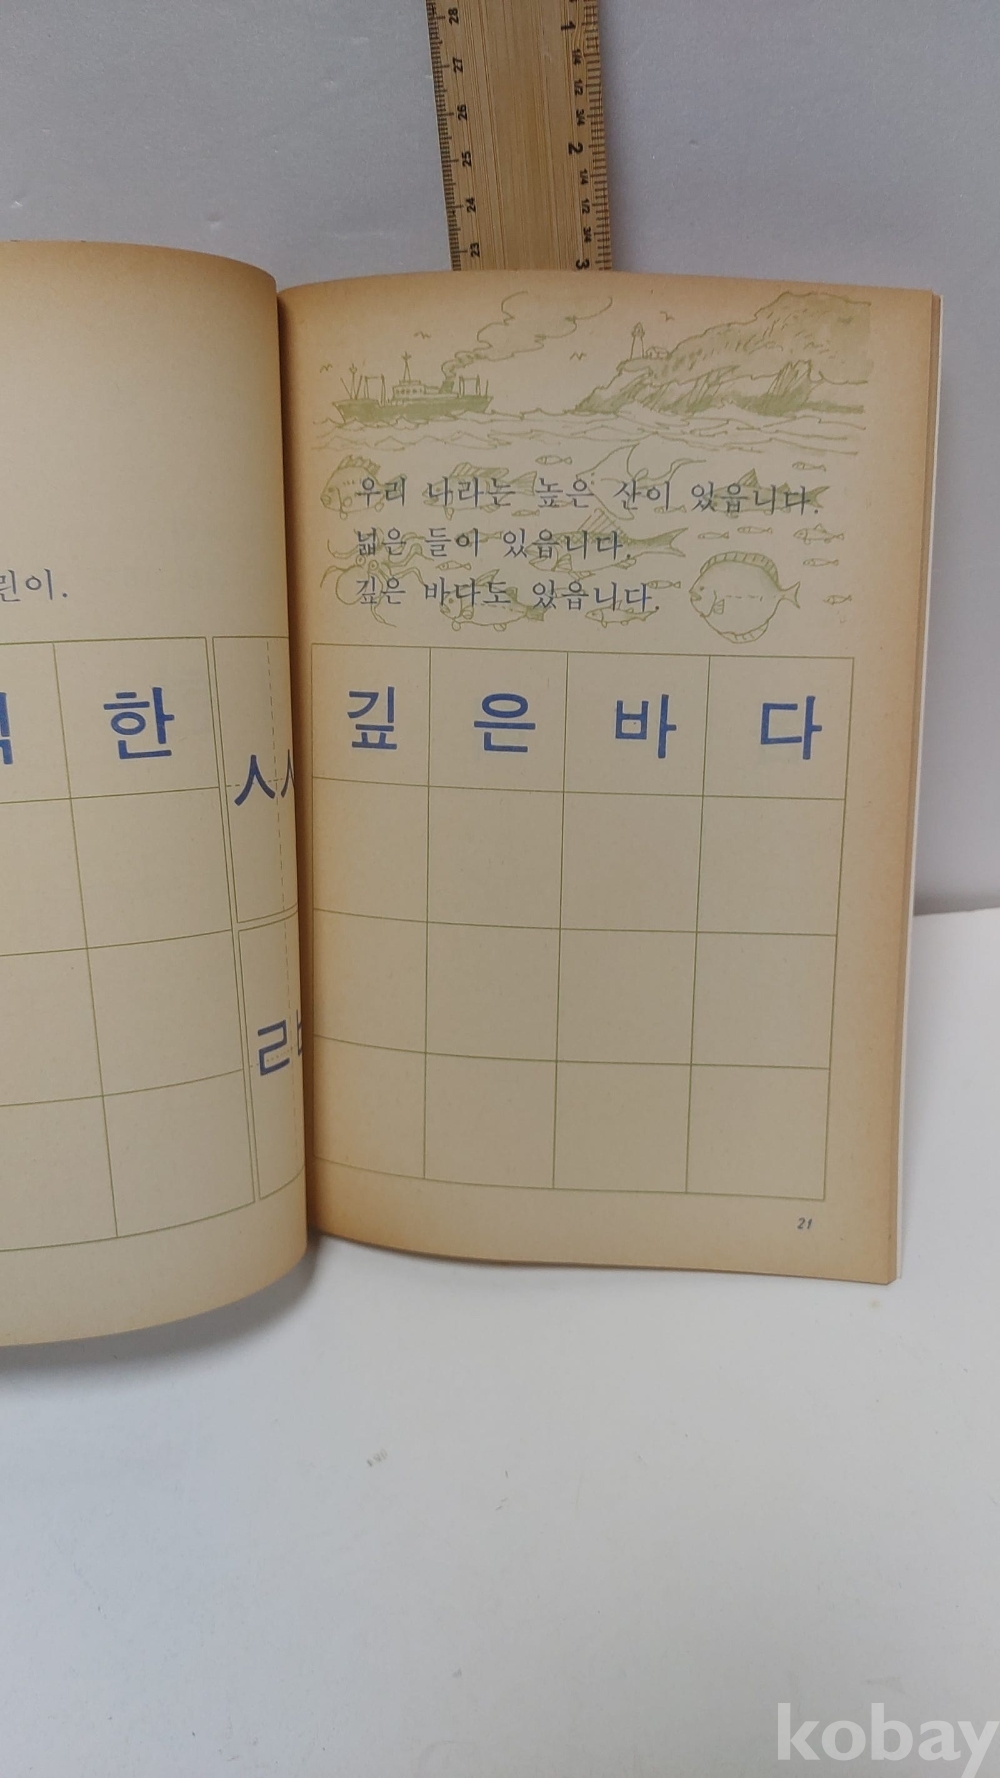 28
27
26
25
24
23
1
1/4
1/2
3/4
2
1/4
1/2
3/4
3
린이.
한
ㅅㅅ
우리 나라는 높은 산이 있읍니다.
넓은 들이 있읍니다.
깊은 바다도 있읍니다.
깊 은 바 다
21
kobay